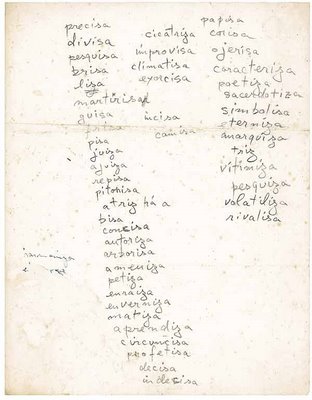 precisa
divisa
pesquisa
brisa
lisa
martirisa
guisa
pisa
juiza
ajuiza
repisa
pitonisa
atriz há a
bisa
concisa
autoriza
arborisa
ameniza
petiza
enraiza
enverniza
matiza
aprendiza
circuncisa
profetisa
decisa
indecisa
cicatriza
improvisa
climatisa
exorcisa
incisa
camisa
papisa
coisa
ojeriza
caracteriza
poetisa
sacerdotiza
simbolisa
eterniza
anarquiza
triz
vitimiza
pesquiza
volatiliza
rivalisa